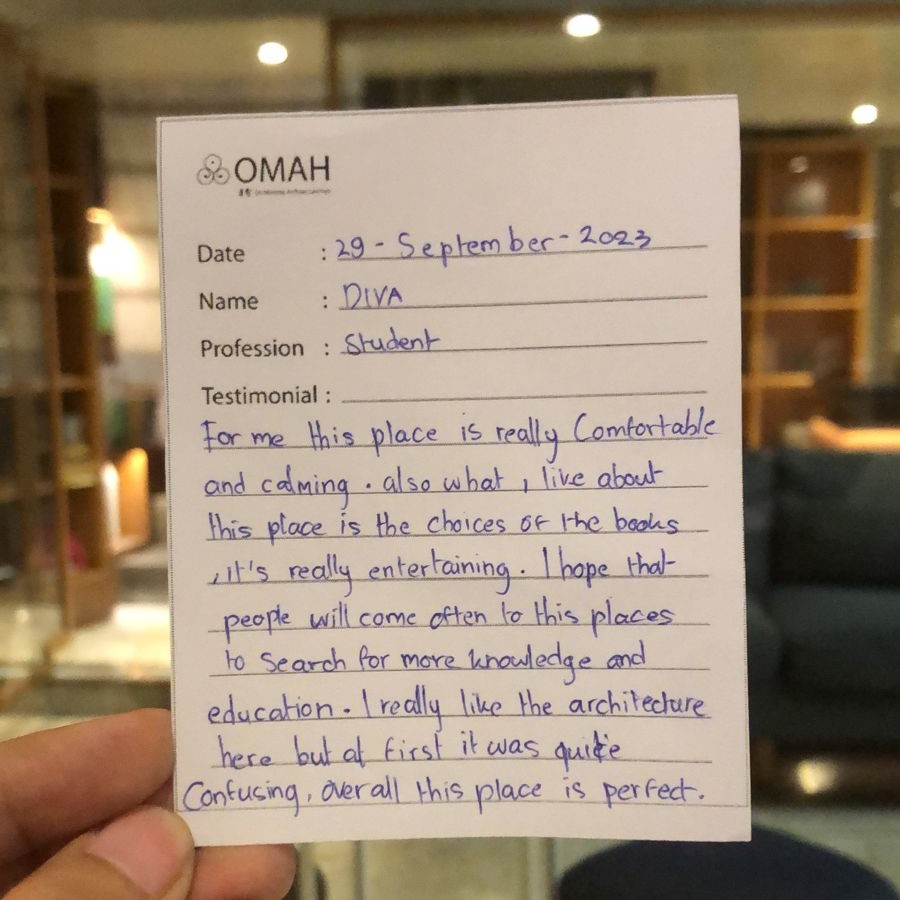 OMAH
Date : 29 - September - 2023
Name : DIVA
Profession : Student
Testimonial :
For me this place is really Comfortable
and calming . also what I like about
this place is the choices of the books
, it's really entertaining . I hope that
people will come often to this places
to search for more knowledge and
education . I really like the architecture
here but at first it was quite
Confusing, overall this place is perfect.